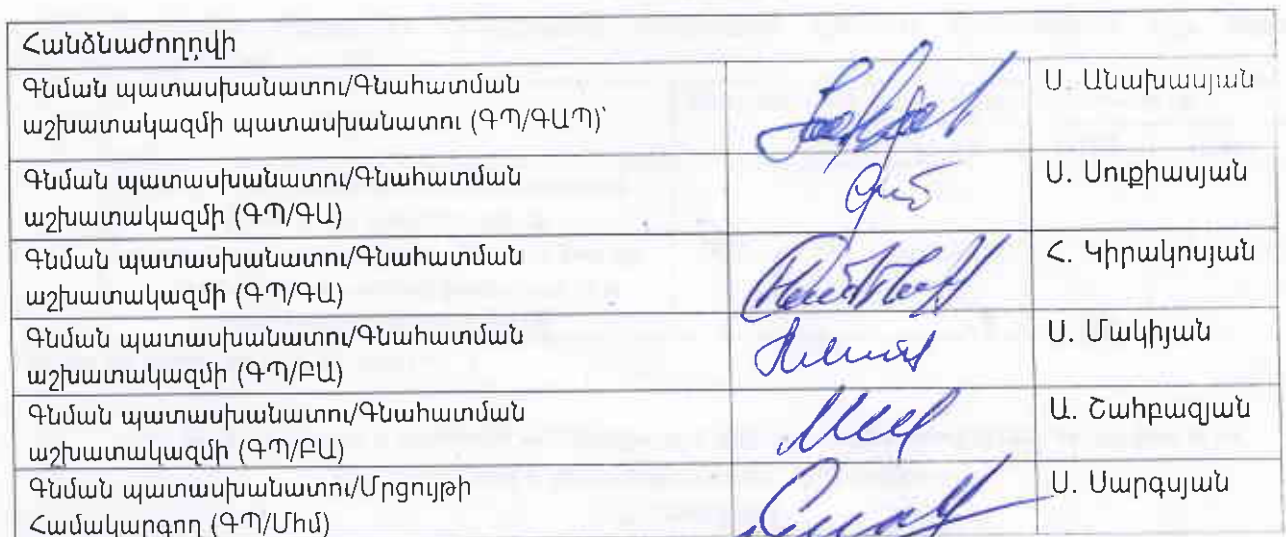 Հանձնաժողովի
Գնման պատասխանատու/Գնահատման
աշխատակազմի պատասխանատու (ԳՊ/ԳԱՊ)՝
Ս. Անախասյան
Գնման պատասխանատու/Գնահատման
աշխատակազմի (ԳՊ/ԳԱ)
Ս. Սուքիասյան
Գնման պատասխանատու/Գնահատման
աշխատակազմի (ԳՊ/ԳԱ)
Հ. Կիրակոսյան
Գնման պատասխանատու/Գնահատման
աշխատակազմի (ԳՊ/ԲԱ)
Ս. Մակիյան
Գնման պատասխանատու/Գնահատման
աշխատակազմի (ԳՊ/ԲԱ)
Ա. Շահբազյան
Գնման պատասխանատու/Մրցույթի
Համակարգող (ԳՊ/Միմ)
Ս. Սարգսյան